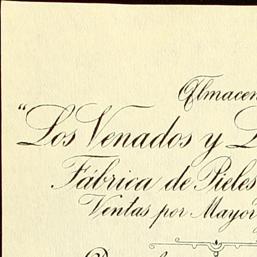 Almacen
"Los Venados y L
Fábrica de Pieles
Ventas por Mayor